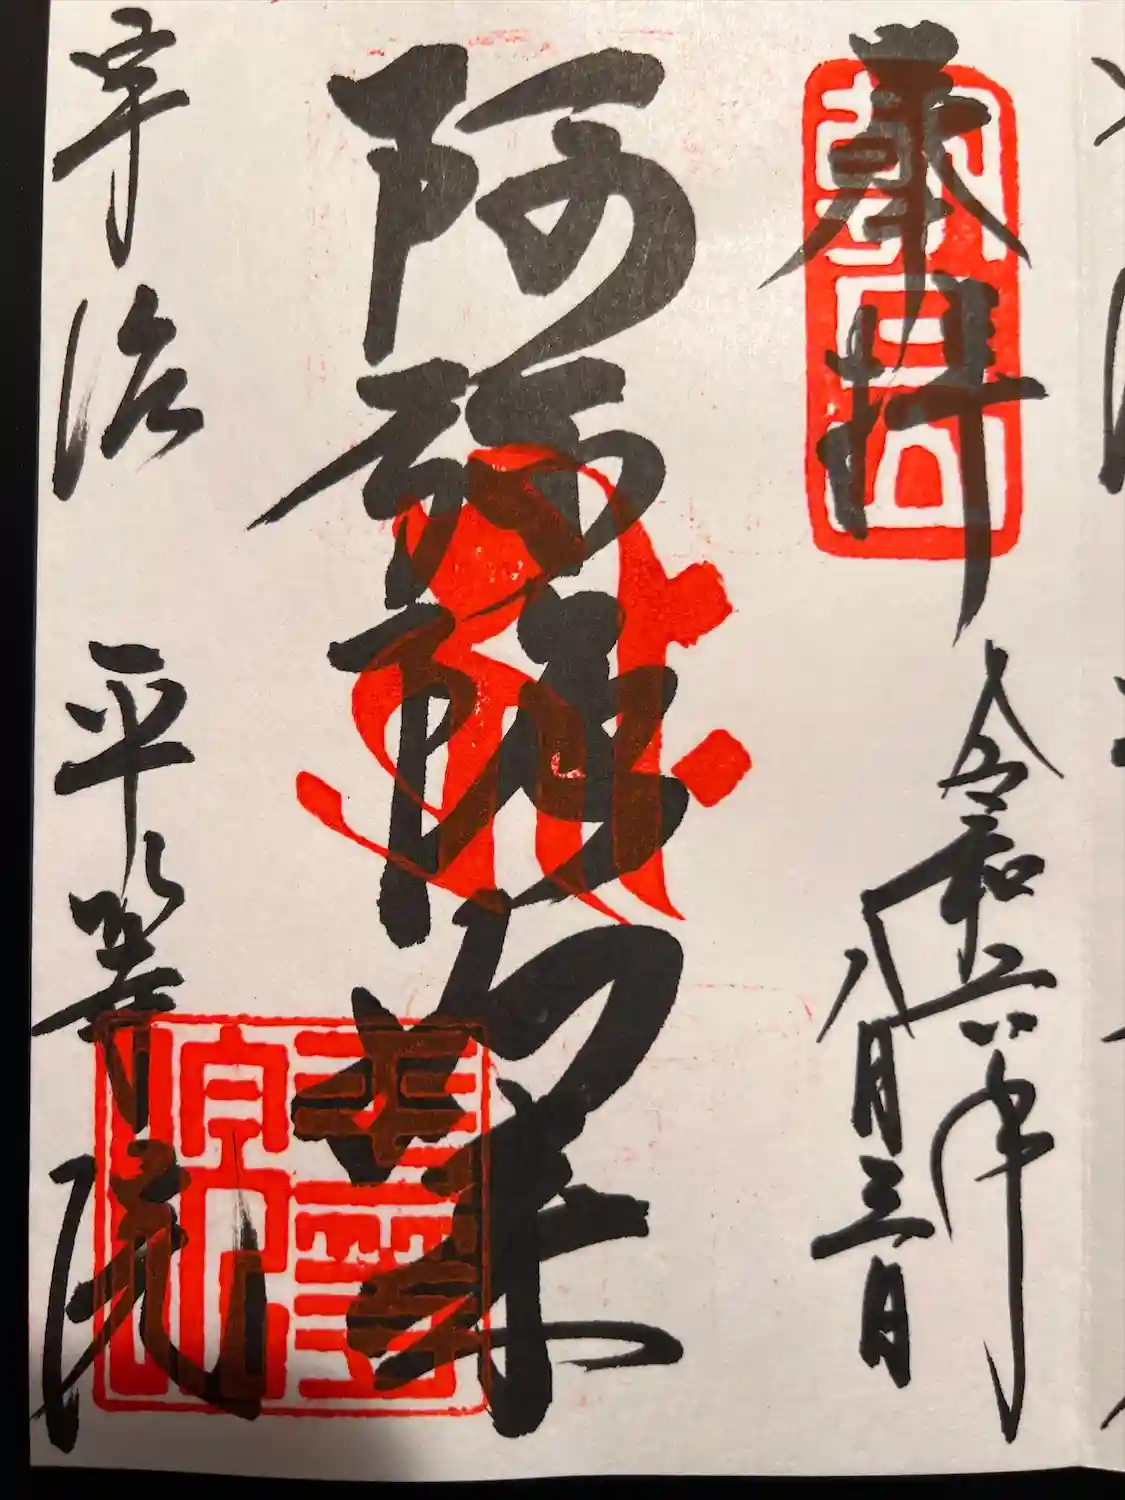 奉拝
令和六年
八月三日
朝日山
阿弥陀如来
宇治 平等院
平等
院印